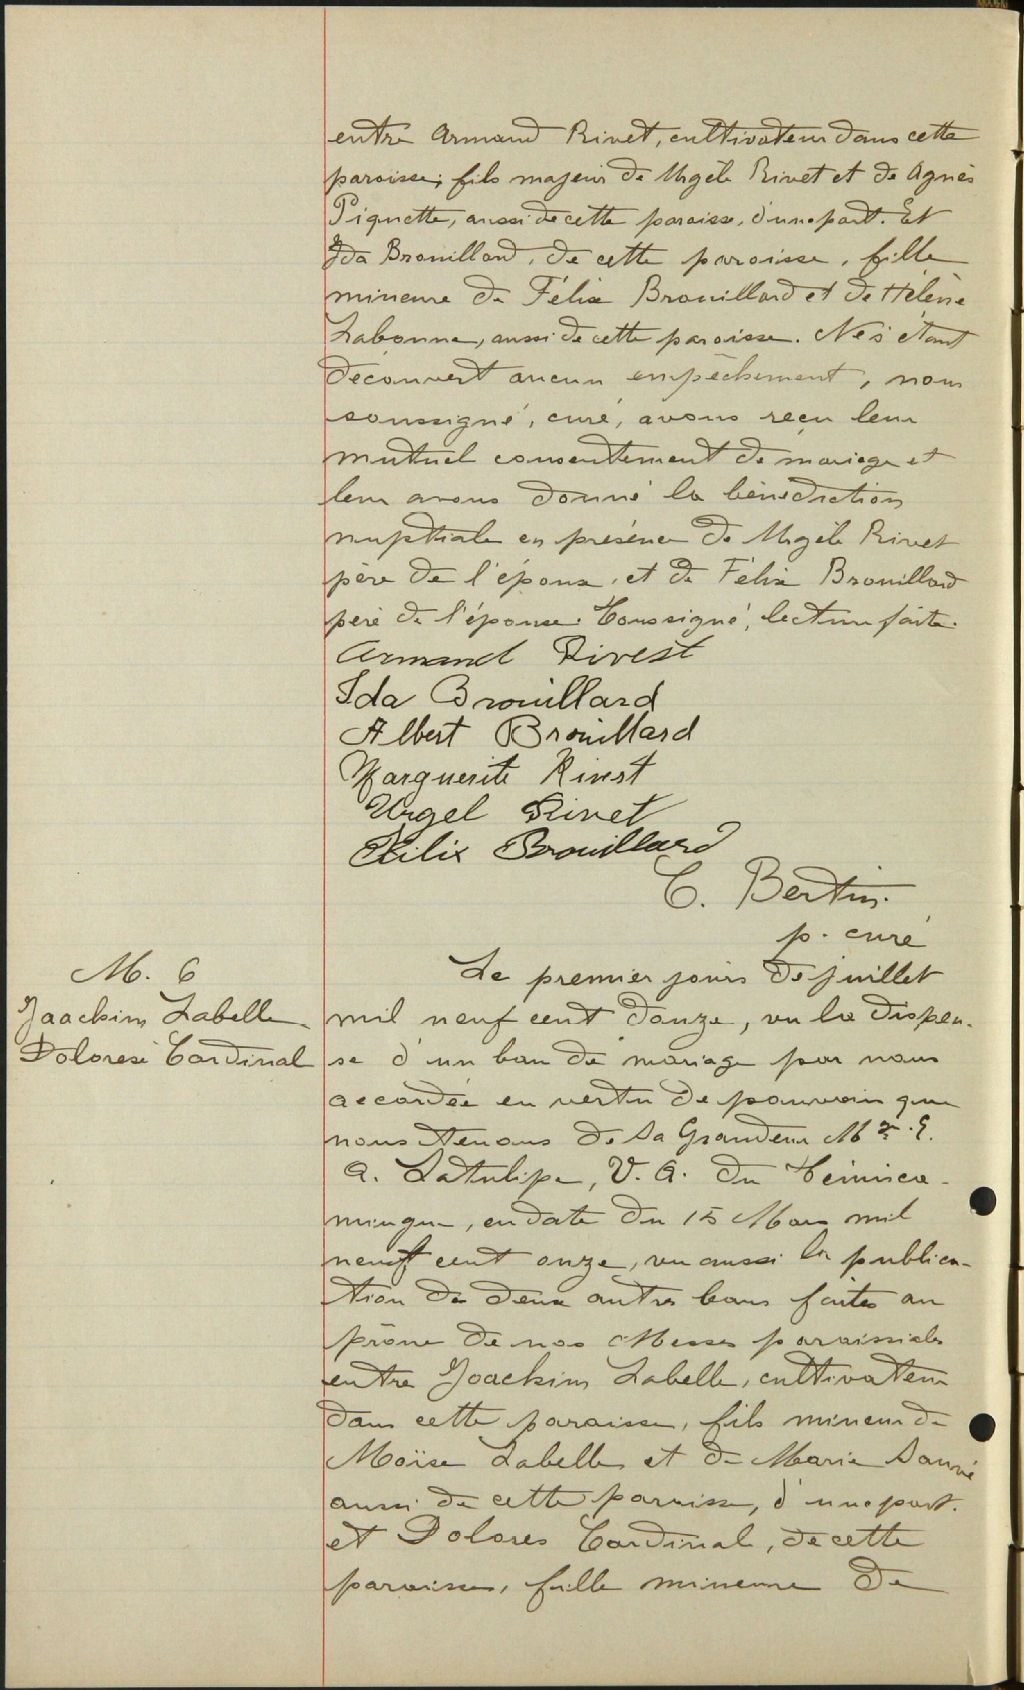 entre Armand Rivet, cultivateur dans cette
paroisse, fils majeur de Urgèle Rivet et de Agnès
Piquette, aussi de cette paroisse, d'une part. Et
Ida Brouillard, de cette paroisse, fille
mineure de Félix Brouillard et de Hélène
Labonne, aussi de cette paroisse. Ne s'étant
découvert aucun empêchement, nous
soussigné, curé, avons reçu leur
mutuel consentement de mariage et
leur avons donné la bénédiction
nuptiale en présence de Urgèle Rivet
père de l'époux, et de Félix Brouillard
père de l'épouse. Coussigné, lecture faite.
Armand Rivest
Ida Brouillard
Albert Brouillard
Marguerite Rivest
Urgel Rivet
Félix Brouillard
C. Bertin.
p. curé
M. 6
Joachim Labelle
Dolorese Cardinal
Le premier jours de juillet
mil neuf cent douze, vu la dispen-
se d'un ban de mariage par nous
accordée en vertu de pouvoirs que
nous tenons de Sa Grandeur Mgr. E.
A. Latulipe, V. A. du Témisca-
mingue, en date du 15 Mars mil
neuf cent onze, vu aussi la publica-
tion de deux autres bans faites au
prône de nos Messes paroissiales
entre Joachim Labelle, cultivateur
dans cette paroisse, fils mineur de
Moïse Labelle et de Marie Sauvé
aussi de cette paroisse, d'une part.
et Dolores Cardinal, de cette
paroisse, fille mineure de